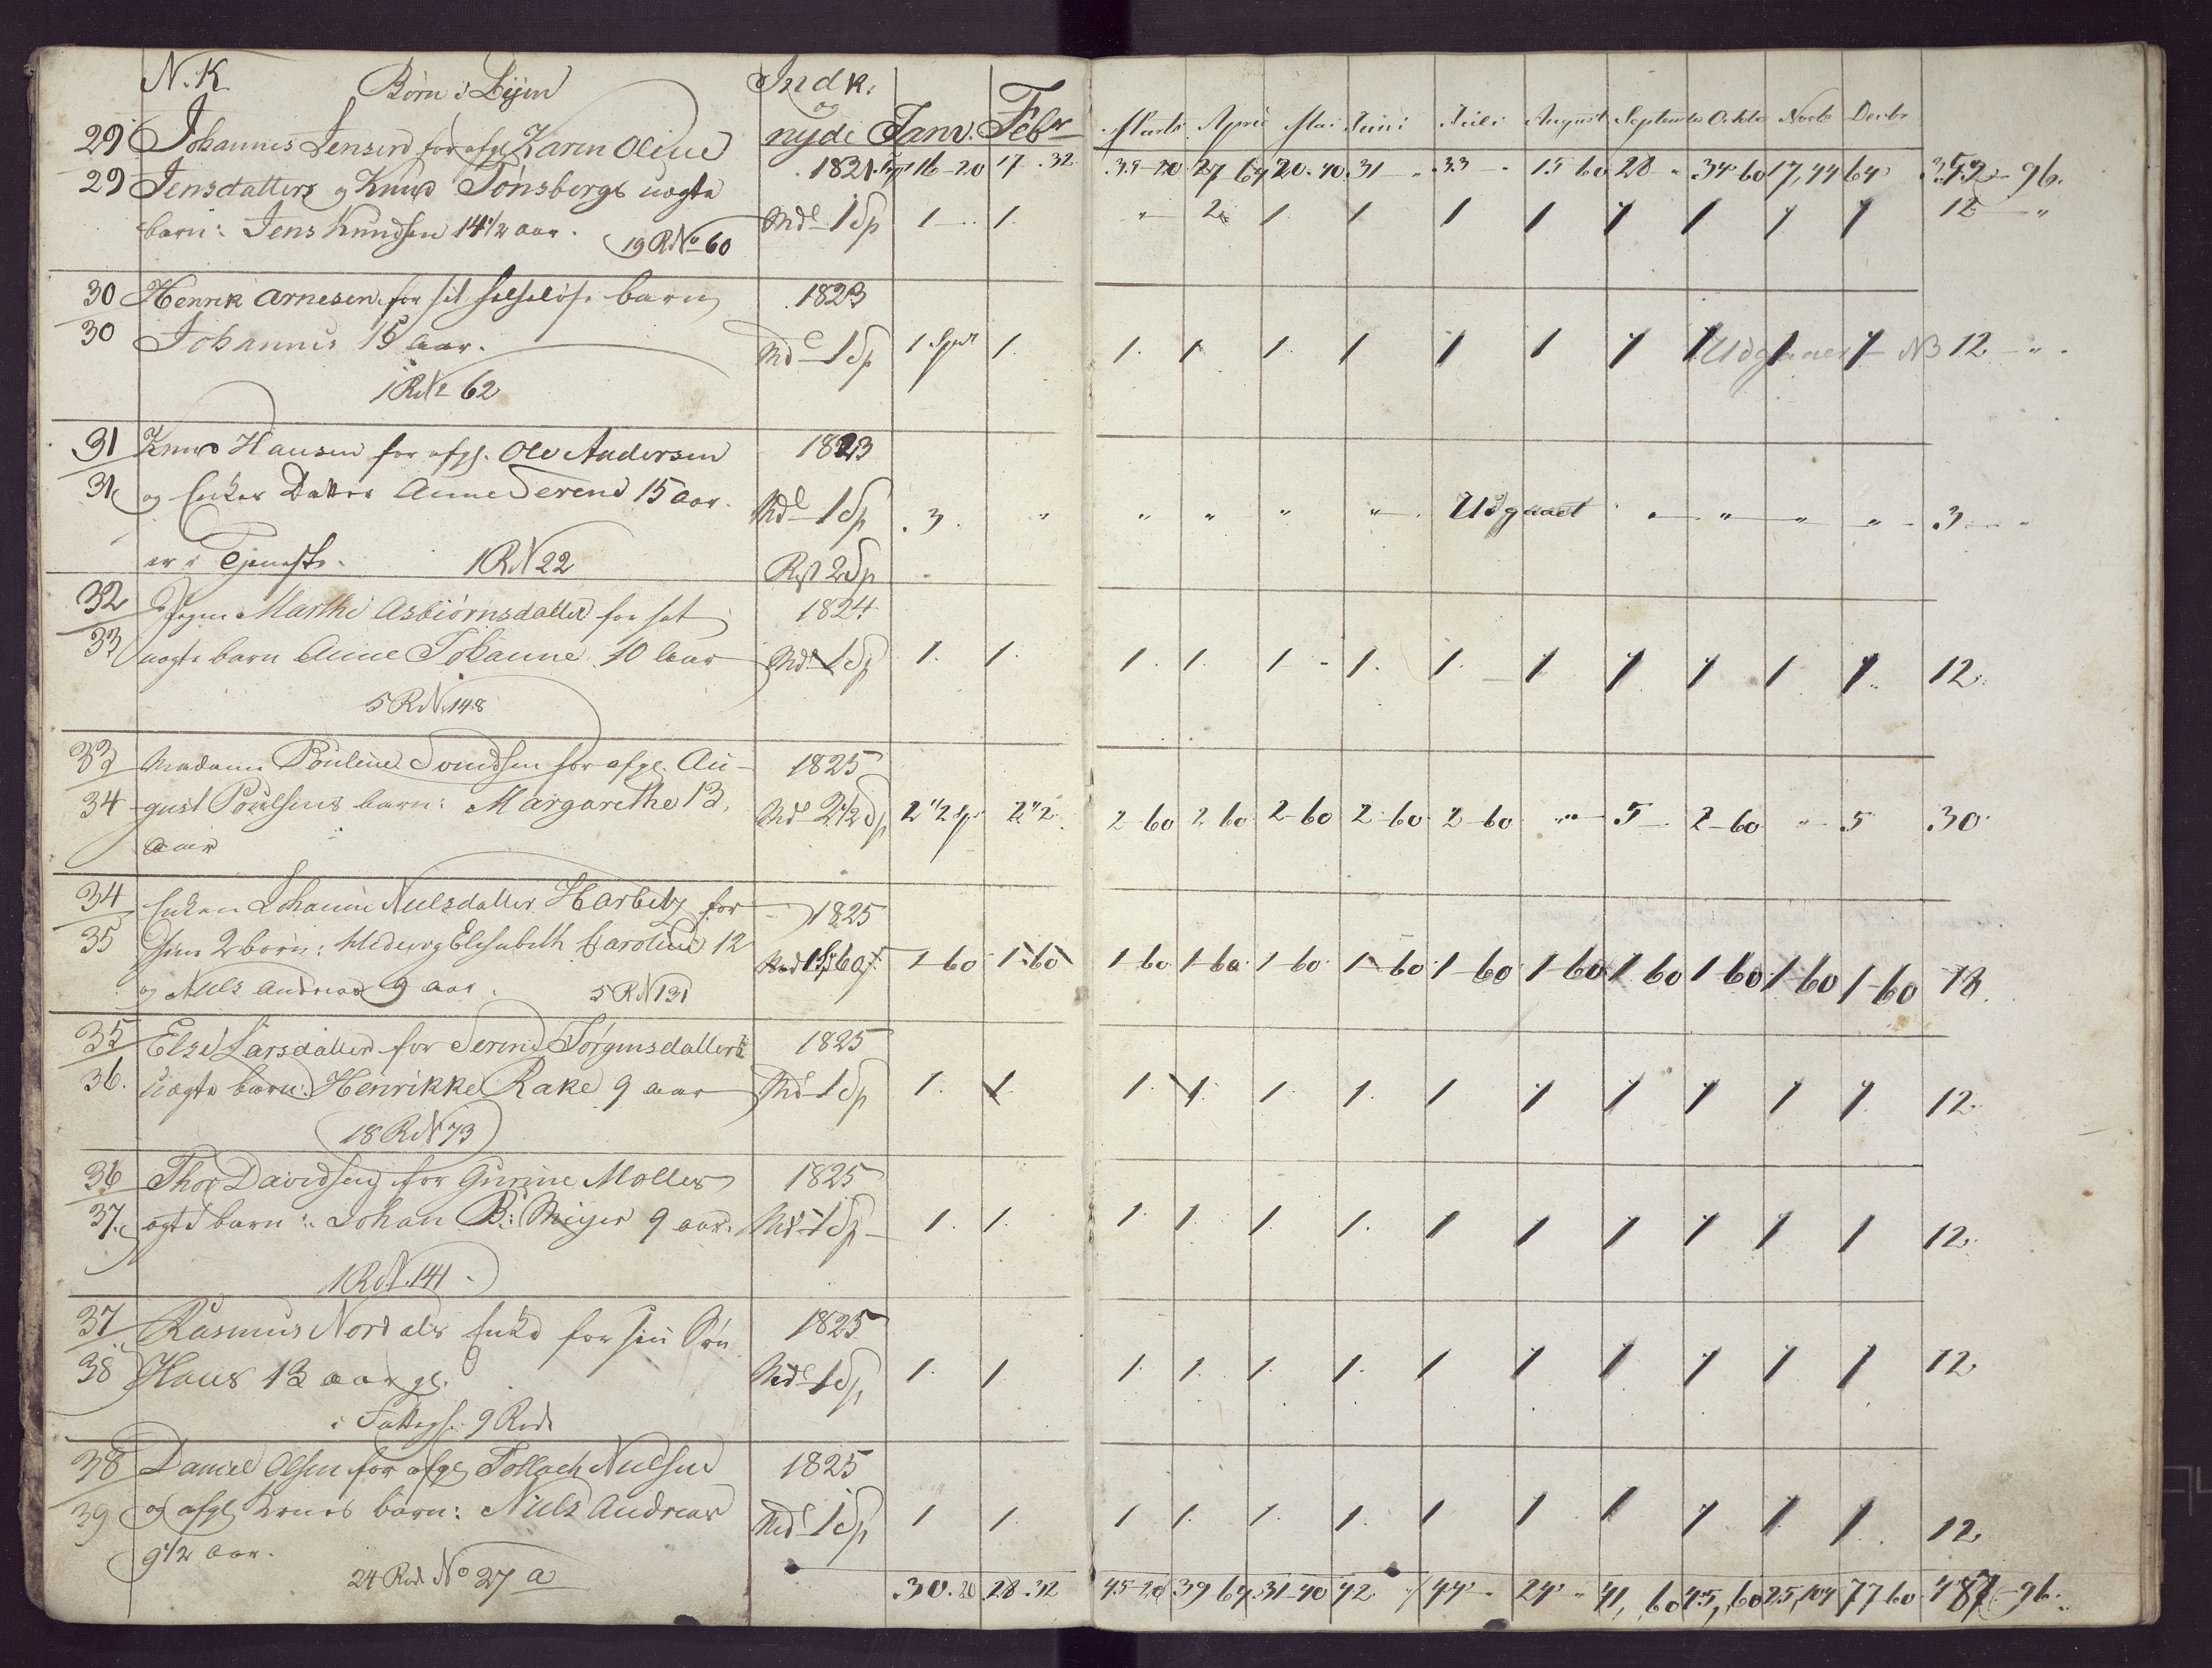 N. K. Børn i Byen Indk. og nyde Janv. Febr Marts April Mai Juni Juli August Septembr Octbr Novbr Decbr
29 Johannes Jensen for afg. Karen Oline 1821 116-20 17-32 35-20 27 64 20-40 31 - 33 - 15 60 28 " 34 60 17,44 64 353-96
29 Jensdatters og Knud Tønsbergs uægte Md 1 Sp 1 1 " 2 1 1 1 1 1 1 1 1 12 "
barn: Jens Knudsen 14 1/2 aar. 19 R No 60
30 Henrik Arnesen for sit barn 1823
30 Johannes 15 Aar. Md 1 Sp 1 Spd 1. 1. 1 1. 1 1 1 1 1 1 1 Udgaaer NB 12 "
1 R N 62
31 Knud Hansen for afg. Ole Andersen 1823
31 og Enkes Datter Anne Serene 15 Aar. Md 1 Sp 3. " " " " " Udgaaet " " " " 3
er i Tjeneste. 1 R N 22 Rest 2 Sp
32 Pigen Marthe Asbiørnsdatter for sit 1824
33 uægte barn Anne Johanne 10 Aar Md 1 Sp 1. 1. 1. 1. 1 1. 1. 1 1 1 1 1. 12.
5 R N 148
33 Madame Pouline Svendsen for afg. Au- 1825
34 gust Poulsens barn: Margarethe 13 Md 2 1/2 Sp 2 1/2 Sp 2 1/2 2-60 2 60 2-60 2-60 2-60 " 5 2-60 " 5 30.
Aar
34 Enken Johanne Nielsdatter Harbitz for 1825
35 sine 2 børn: Hedevig Elisabeth Caroline 12 Md 1 Sp 60 s 1-60 1-60 1-60 1-60 1-60 1-60 1-60 1-60 1 60 1-60 1-60 1-60 18.
og Niels Andreas 9 Aar. 5 R N 131
35 Else Larsdatter for Serine Jørgensdatters 1825
36. uægte barn: Henrikke Rake 9 aar Md 1 Sp 1. 1 1. 1. 1. 1. 1 1 1 1 1 1. 12.
18 R N 73
36 Thor Davidsen for Gurine Møllers 1825
37. ægte barn: Johan B: Meyer 9 aar. Md 1 Sp 1. 1. 1. 1. 1. 1. 1 1 1 1 1 1 12.
1 R N. 141.
37 Rasmus Nordals Enke for sin Søn 1825
38 Hans 13 aar gl. Md 1 Sp 1. 1 1. 1. 1. 1. 1 1 1 1 1 1 12
i Fattigh. 9 Rode
38 Daniel Olsen for afg. Tollach Nielsen 1825
39 og afg. Kones barn: Niels Andreas Md 1 Sp 1 1. 1 1. 1. 1. 1 1 1 1 1. 1. 12
9 1/2 Aar.
24 Rode No 27 a 30. 20 28. 32 45-20 39 64 31-40 42 44 - 24 " 41, 60 45, 60 25, 104 77 60 487-96.